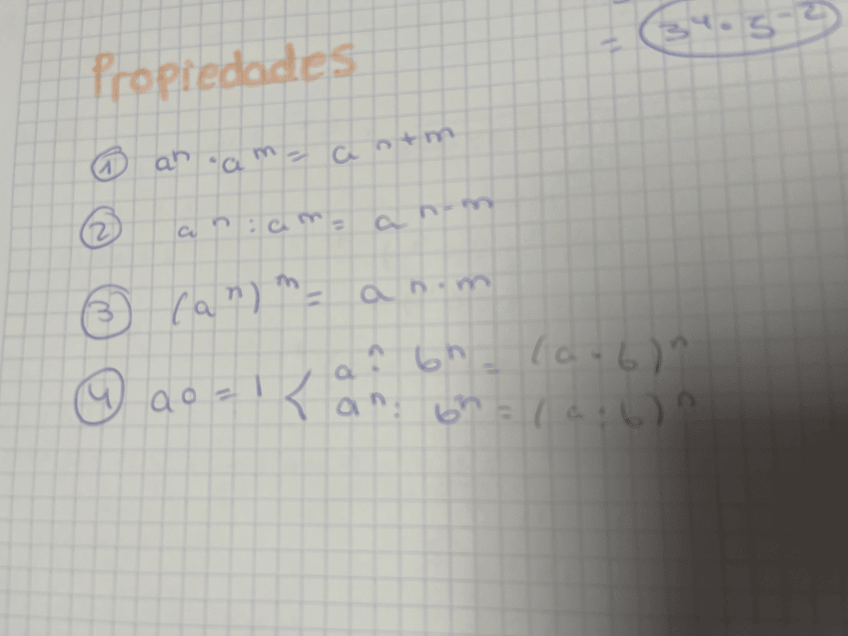 = 3⁴ · 5⁻²
Propiedades
① aⁿ · aᵐ = aⁿ⁺ᵐ
② aⁿ : aᵐ = aⁿ⁻ᵐ
③ (aⁿ)ᵐ = aⁿ·ᵐ
④ a⁰ = 1 < aⁿ · bⁿ = (a · b)ⁿ
aⁿ : bⁿ = (a : b)ⁿ